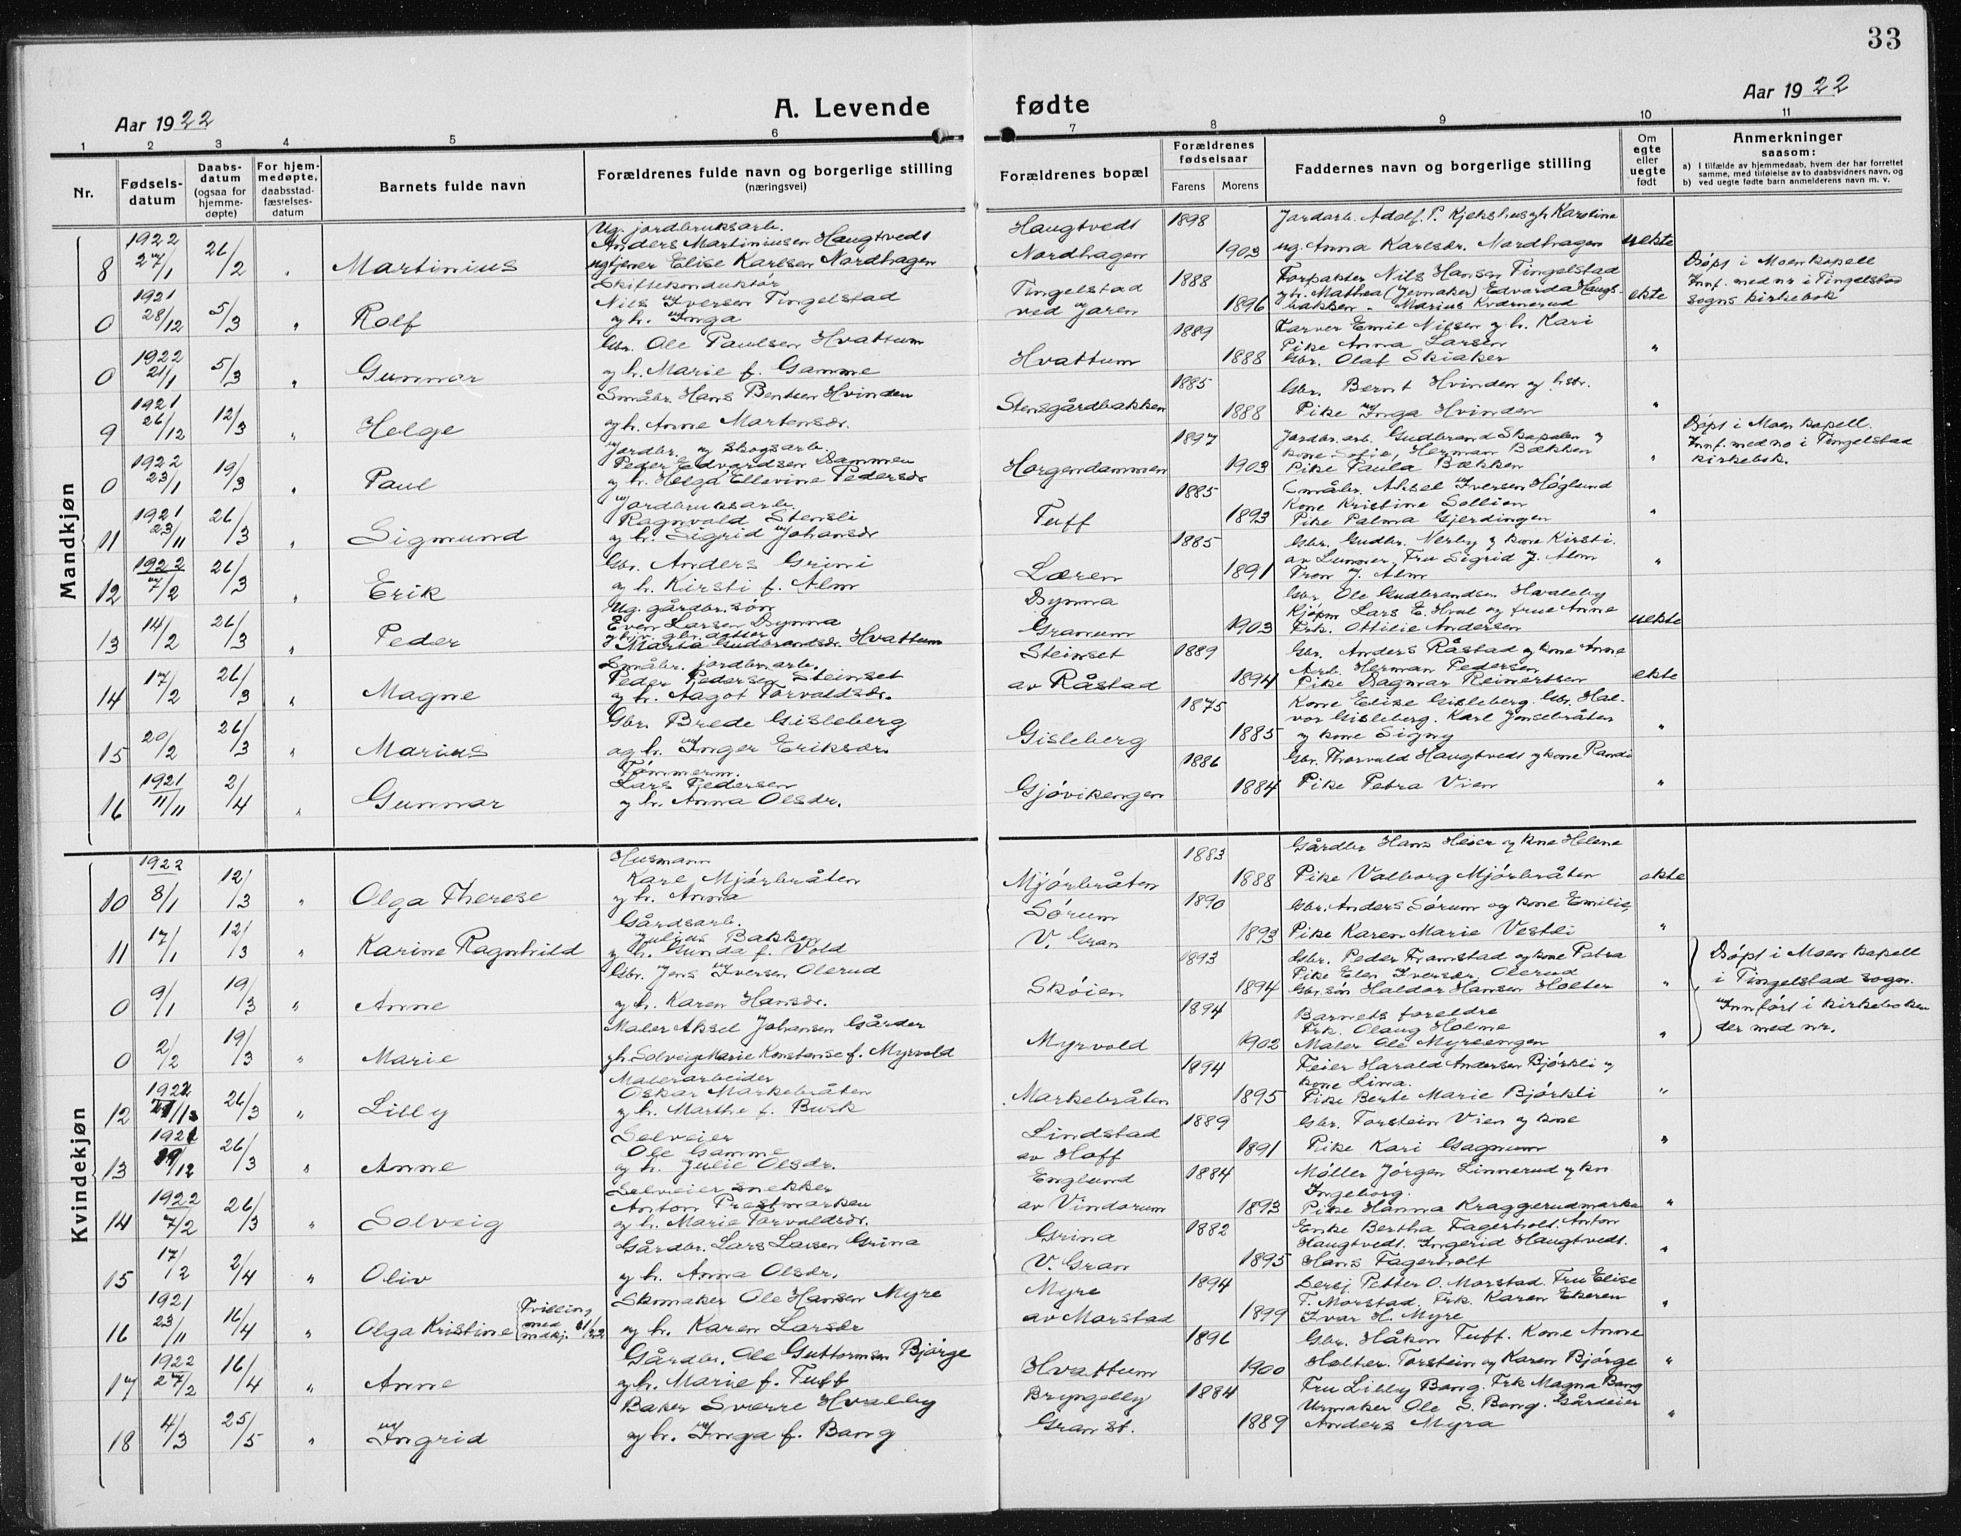 33
Aar 1922
A. Levende fødte
Aar 1922
1 2 3 4 5 6 7 8 9 10 11
Nr.
Fødsels-
datum
Daabs-
datum
(ogsaa for
hjemme-
døpte)
For hjem-
medøpte,
daabsstad-
fæstelses-
datum
Barnets fulde navn
Forældrenes fulde navn og borgerlige stilling
(næringsvei)
Forældrenes bopæl
Forældrenes
fødselsaar
Farens Morens
Faddernes navn og borgerlige stilling
Om
egte
eller
uegte
født
Anmerkninger
saasom:
a) I tilfælde av hjemmedaab, hvem der har forrettet
samme, med tilføielse av to daabsvidners navn, og
b) ved uegte fødte barn anmelderens navn m. v.
Mandkjøn
Ug. jordbruksarb. Haugtvedt 1898 Jordarb. Adolf P. Kjekshus gh Karoline
1922 Anders Martiniusen Haugtvedt
8 27/1 26/2 " Martinius ugtjener Elise Karlsen Nordhagen Nordhagen 1903 ug. Anna Karlsdr. Nordhagen uekte
Skiftekonduktør Tingelstad 1888 Forpakter Nils Hansen Tingelstad Døpt i Moen kapell
1921 Nils Iversen Tingelstad yh. Mathea (Jvmaker) Edvarda Haugs- Innf. med no i Tingelstad
0 28/12 5/3 " Rolf og h. Inga ved Jaren 1896 bakken. Marius Kværnerud ekte sogns kirkebok
1922 Gbr. Ole Paulsen Hvattum 1889 Karver Emil Nilsen y h. Kari
Pike Anna Larsen
0 21/1 5/3 " Gunnar og h. Marie f. Gamme Hvattum 1888 Gbr. Olaf Skiaker "
1921 Småbr. Hans Bentsen Hvinden 1885 Gbr. Bernt Hvinden og hstr.
9 26/12 12/3 " Helge og h. Anne Martensdr. Stensgårdbakken 1888 Pike Inga Hvinden "
Jordbr. og skogsarb. 1897 Jordbr. arb. Gudbrand Skapalen y Døpt i Moen kapell.
1922 Peder Edvardsen Dammen kone Sofie, Herman Bækken Innf. med no i Tingelstad
0 23/1 19/3 " Paul og h. Helga Ellevine Pedersdr Horgendammen 1903 Pike Paula Bækken " kirkebok.
Jordbruksarb. 1885 Småbr. Aksel Iversen Høglund
1921 Ragnvald Stensli Kone Kristine Sollien
11 23/11 26/3 " Sigmund og h. Sigrid Johansdr Tuff 1893 Pike Palma Gjerdingen "
1922 Gbr. Anders Grini 1885 Gbr. Gudbr. Nerby y kone Kirsti.
av Lunner, Fru Sigrid J. Alm
12 7/2 26/3 " Erik og h. Kirsti f. Alm Læren 1891 Tron J. Alm "
Ug. gårdbr. søn Dynna Gbr Ole Gudbrandsen Hvaleby
Even Larsen Dynna Kjøpm Lars E. Hval og frue Anne
13 14/2 26/3 " Peder Marta Gudbrandsdr. Hvattum Granum 1903 Frk. Ottilie Andersen uekte
Småbr. jordbr. arb. Steinset 1889 Gbr. Anders Råstad og kone Anne
Peder Pedersen Steinset Arb. Herman Pedersen
14 17/2 26/3 " Magne og h. Aagot Torvaldsdr. av Råstad 1894 Pike Dagmar Reinertsen ekte
Gbr. Brede Gisleberg 1875 Kone Elise Gisleberg. Gbr. Hal-
vor Gisleberg. Karl Jonsbråten
15 20/2 26/3 " Marius og h. Inger Eriksdr. Gisleberg 1885 y kone Signy "
1921 Tømmerm. 1886 Gbr. Thorvald Haugtvedt og kone Randi
Lars Pedersen
16 11/11 2/4 " Gunnar og h. Anna Olsdr. Gjøvikengen 1884 Pike Petra Vien "
Kvindekjøn
1922 Husmann 1883 Gårdbr Hans Heier og kone Helene
Karl Mjørbråten
10 8/1 12/3 " Olga Therese og h. Anna Mjørbråten 1888 Pike Valborg Mjørbråten ekte
Gårdsarb. Sørum 1890 Gbr. Anders Sørum og kone Emilie,
Julius Bakken
11 17/1 12/3 " Karine Ragnhild og h. Gunda f. Vold V. Gran 1893 Pike Karen Marie Vestli "
Gbr. Jens Iversen Olerud 1893 Gbr. Peder Framstad og kone Petra Døpt i Moen kapell
Pike Elen Iversdr. Olerud i Tingelstad sogn.
0 9/1 19/3 " Anne og h. Karen Hansdr. Skøien 1894 Gbr. søn Haldor Hansen Holter " Innført i kirkeboken
Maler Aksel Johansen Gårder 1894 Barnets foreldre der med nr.
Frk. Olaug Holme
0 2/2 19/3 " Marie gh Solveig Marie Konstanse f. Myrvold Myrvold 1902 Maler Ole Myrsengen "
Malerarbeider 1894 Feier Harald Andersen Bjørkli y
1922 Oskar Markebråten kone Lina.
12 26/3 " Lilly og h. Marthe f. Busk Markebråten 1895 Pike Berte Marie Bjørkli "
1921 Selveier Lindstad 1889 Gbr. Torstein Vien y kone
Ole Gamme
13 19/12 26/3 " Anne og h. Julie Olsdr. av Hoff 1891 Pike Kari Gagnum "
Selveier snekker Englund 1884 Møller Jørgen Linnerud y kn
1922 Anton Prestmarken Ingeborg.
14 7/2 26/3 " Solveig og h. Marie Torvaldsdr. av Vindorum 1893 Pike Hanna Kraggerudmarka "
Gårdbr. Lars Larsen Grina Grina 1882 Enke Bertha Fagerholt. Anton
Haugtvedt. Ingerid Haugtvedt.
15 17/2 2/4 " Oliv og h. Anna Olsdr. V. Gran 1895 Hans Fagerholt "
1921 Skomaker Ole Hansen Myre Myre 1894 Petter O. Morstad. Fru Elise
T. Morstad. Frk. Karen Ekeren
16 23/11 16/4 " Olga Kristine Tvilling med mdkj. og h. Karen Larsdr av Morstad 1899 Ivar H. Myre "
1922 Gårdbr. Ole Guttormsen Bjørge 1896 Gbr. Håkon Tuff. Kone Anne
17 27/2 16/4 " Anne og h. Marie f. Tuff Hvattum 1900 Holter. Torstein og Karen Bjørge "
Baker Sverre Hvalby Bryngelby 1884 Fru Lilly Bang. Frk Magna Bang
Urmaker Ole S. Bang. Gårdeier
18 4/3 25/5 " Ingrid og h. Inga f. Bang Gran st. 1889 Anders Myra "